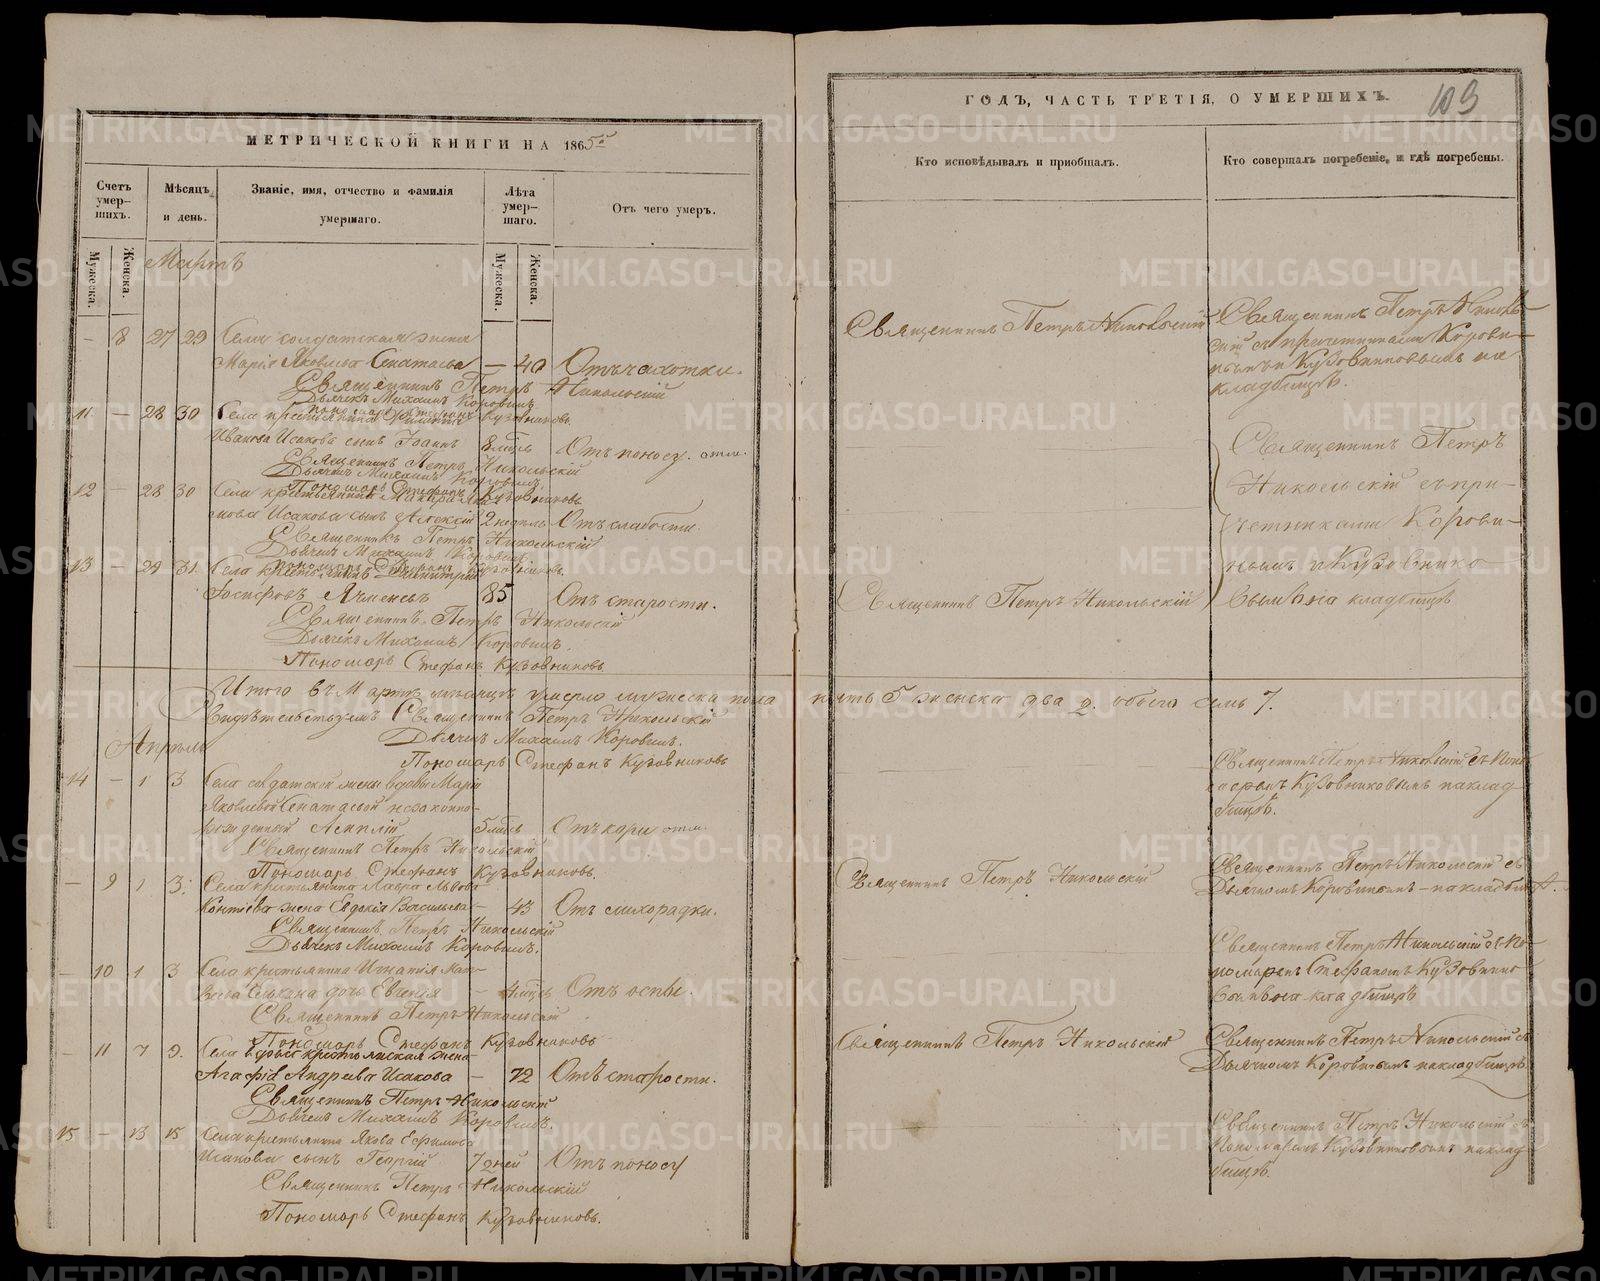 МЕТРИЧЕСКОЙ КНИГИ НА 1865й
Счетъ умер-шихъ.
Мужеска.
Женска.
Мѣсяцъ и день.
Званіе, имя, отчество и фамилія умершаго.
Лѣта умер-шаго.
Мужеска.
Женска.
Отъ чего умеръ.
Мартъ
— 8 27 29 Села солдатская жена
Марія Яковлева Сенатаева — 40 Отъ чахотки.
Священникъ Петръ Никольскій
Дьячекъ Михаилъ Коровинъ
Пономарь Стефанъ Кузовниковъ
11 — 28 30 Села крестьянина
Иванова Исакова сынъ Іоаннъ 8 мѣсц Отъ поносу.
Священникъ Петръ Никольскій
Дьячекъ Михаилъ Коровинъ
Пономарь Стефанъ Кузовниковъ
12 — 28 30 Села крестьянина
Исакова сынъ Алексій 2 недѣль Отъ слабости.
Священникъ Петръ Никольскій
Дьячекъ Михаилъ Коровинъ
Пономарь Стефанъ Кузовниковъ.
13 — 29 31. Села крестьянинъ Димитрій
Іосифовъ Ячменевъ 85 Отъ старости.
Священникъ Петръ Никольскій
Дьячекъ Михаилъ Коровинъ.
Пономарь Стефанъ Кузовниковъ
Итого въ Мартѣ мѣсяцѣ умерло мужеска пола пять 5 женска два 2. обоего семь 7.
Свидѣтельствуемъ Священникъ Петръ Никольскій
Дьячекъ Михаилъ Коровинъ.
Пономарь Стефанъ Кузовниковъ
Апрѣль
14 — 1 3 Села солдатской жены вдовы Маріи
Яковлевой Сенатаевой незаконно-
рожденный 5 мѣсц Отъ кори
Священникъ Петръ Никольскій
Пономарь Стефанъ Кузовниковъ.
— 9 1 3. Села крестьянина Лавра Львова
жена Евдокія Васильева — 43 Отъ лихорадки.
Священникъ Петръ Никольскій
Дьячекъ Михаилъ Коровинъ.
— 10 1 3 Села крестьянина Игнатія
дочь Евгенія — 4 мѣсц Отъ оспы.
Священникъ Петръ Никольскій
Пономарь Стефанъ Кузовниковъ
— 11 7 9. Села вдовая крестьянская жена
Агафія Андреева Исакова — 72 Отъ старости.
Священникъ Петръ Никольскій
Дьячекъ Михаилъ Коровинъ.
15 — 13 15 Села крестьянина Якова Ефимова
Исакова сынъ Георгій 7 дней Отъ поносу
Священникъ Петръ Никольскій
Пономарь Стефанъ Кузовниковъ.
103
ГОДЪ, ЧАСТЬ ТРЕТІЯ, О УМЕРШИХЪ.
Кто исповѣдывалъ и пріобщалъ.
Кто совершалъ погребеніе, и гдѣ погребены.
Священникъ Петръ Никольскій
Священникъ Петръ Николь-
скій съ причетниками Корови-
нымъ и Кузовниковымъ на
кладбищѣ.
Священникъ Петръ
Никольскій съ при-
четниками Корови-
нымъ и Кузовнико-
вымъ на кладбищѣ
Священникъ Петръ Никольскій
Священникъ Петръ Никольскій съ Поно-
маремъ Кузовниковымъ на клад-
бищѣ.
Священникъ Петръ Никольскій
Священникъ Петръ Никольскій съ
Дьячкомъ Коровинымъ — на кладбищѣ.
Священникъ Петръ Никольскій съ По-
номаремъ Стефаномъ Кузовнико-
вымъ на кладбищѣ
Священникъ Петръ Никольскій
Священникъ Петръ Никольскій съ
Дьячкомъ Коровинымъ на кладбищѣ.
Священникъ Петръ Никольскій съ
Пономаремъ Кузовниковымъ на клад-
бищѣ.
METRIKI.GASO-URAL.RU